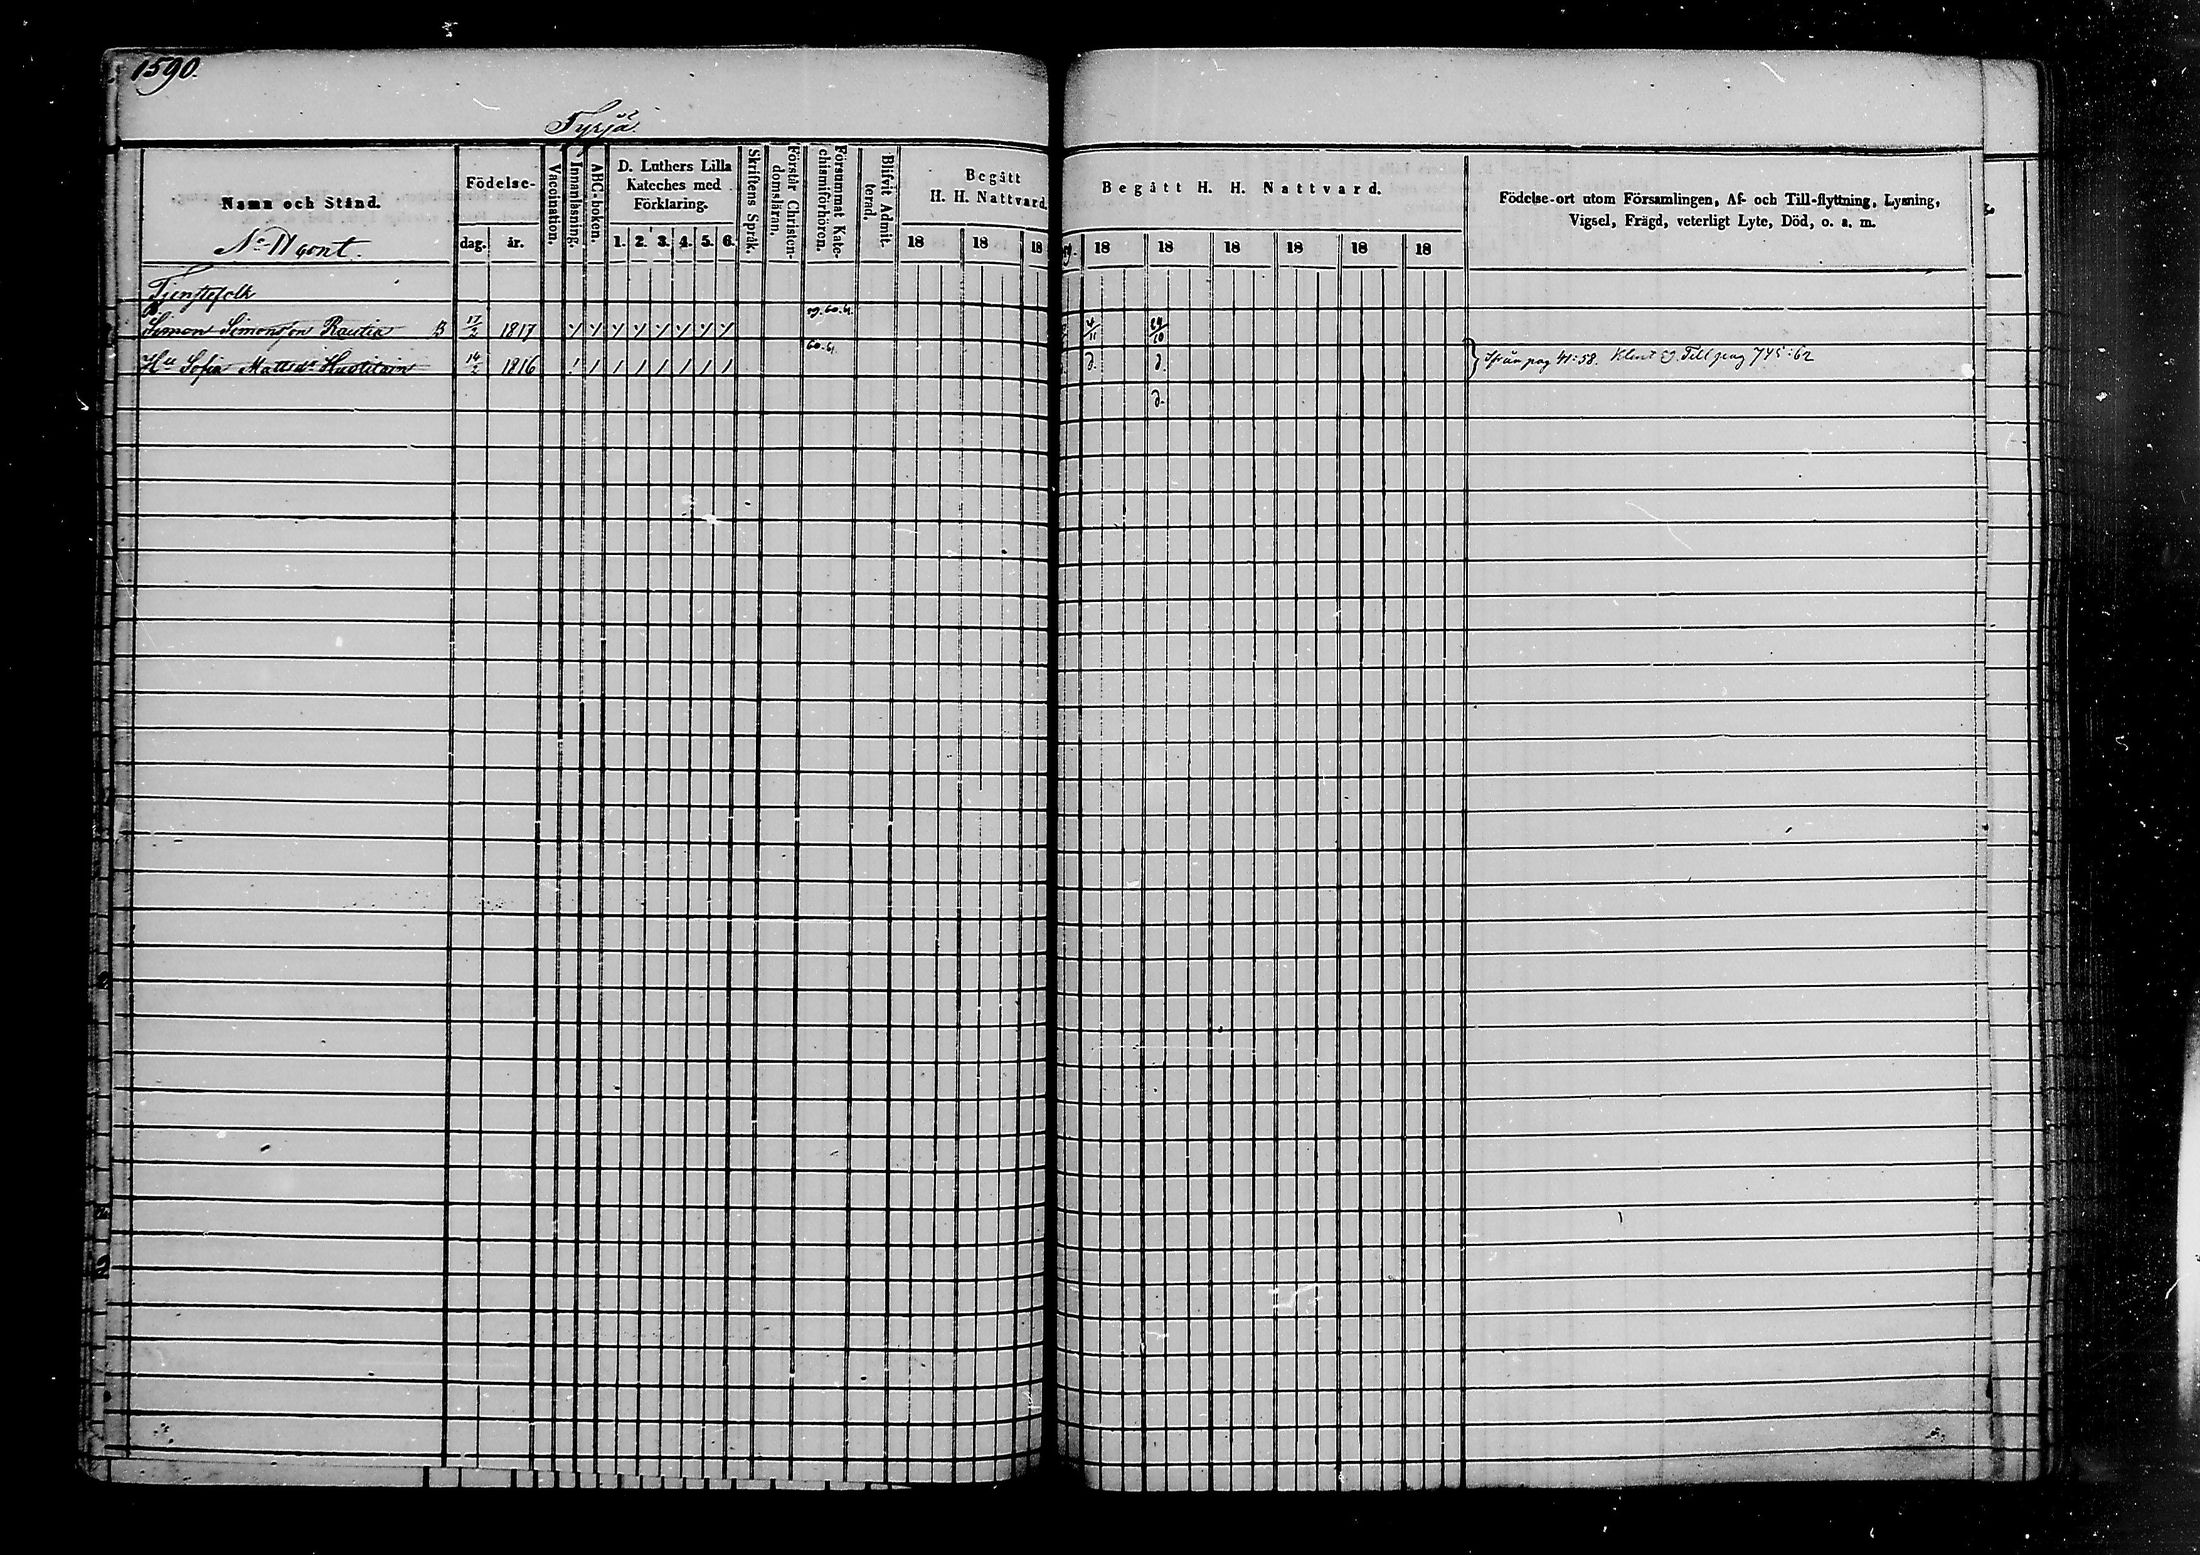 1590.
Tyrjä.
Namn och Stånd.
Födelse-
dag. år.
Vaccination.
Innanläsning.
ABC-boken.
D. Luthers Lilla
Kateches med
Förklaring.
1. 2. 3. 4. 5. 6.
Skriftens Språk.
Förstår Christen-
domsläran.
Försummat Kate-
chismiförhören.
Blifvit Admit-
terad.
Begått
H. H. Nattvard.
18 18 18
Begått H. H. Nattvard.
18 18 18 18 18 18
Födelse-ort utom Församlingen, Af- och Till-flyttning, Lysning,
Vigsel, Frägd, veterligt Lyte, Död, o. s. m.
Tjenstefolk
Simon Simonsson Rautia B 17/2 1817 59. 60. 61. 4/11 24/10
Hu Sofia Mattsdr 14/2 1816 60. 61. d. d.
Ifrån pag 41:58. Till pag 745:62
d.